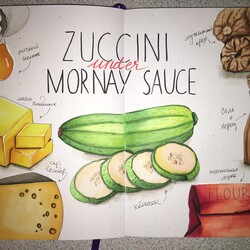 ZUCCINI
under
MORNAY SAUCE
мускатный
орех
яичный
желток
масло
сливочное
соль
и
перец
сыр
кабачок
пшеничная
мука
FLOUR